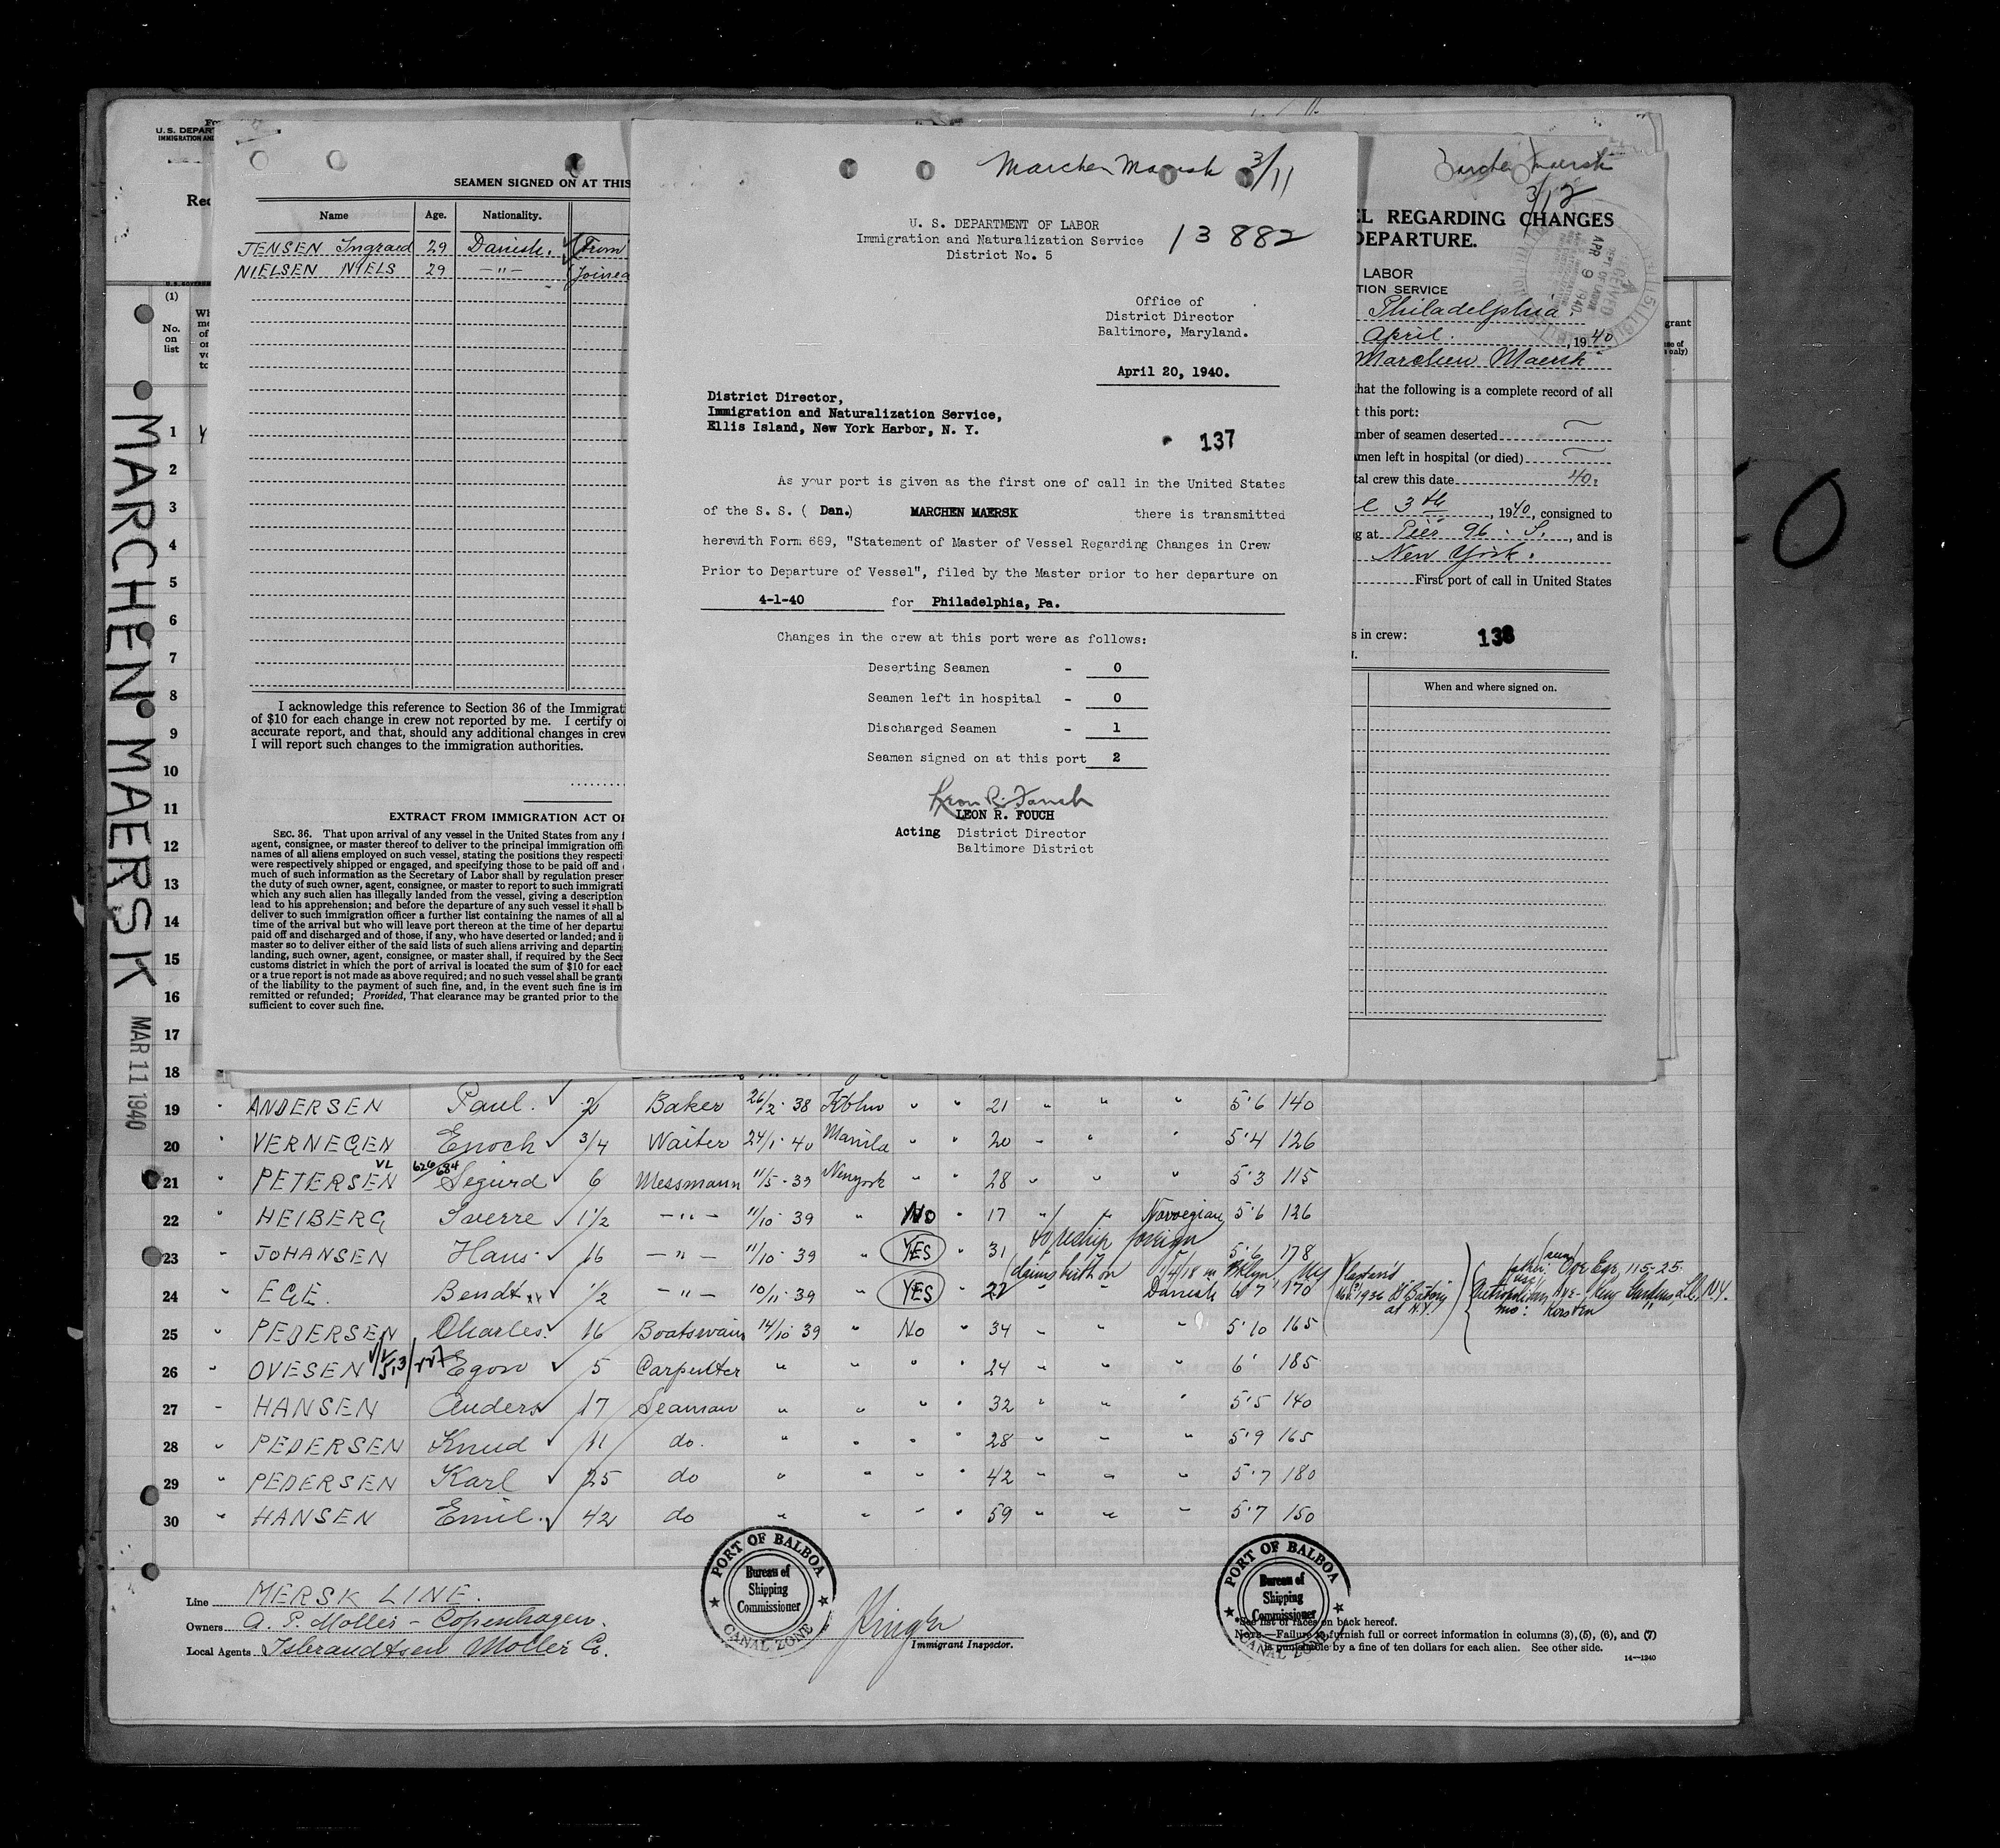 MARCHEN MAERSK
MAR 11 1940
U. S. DEPAR
IMMIGRATION AND
(1)
No.
on
list
SEAMEN SIGNED ON AT THIS
Name Age. Nationality.
JENSEN Ingvard 29 Danish. (From
NIELSEN NIELS 29 —"— (Joined
I acknowledge this reference to Section 36 of the Immigrat
of $10 for each change in crew not reported by me. I certify
accurate report, and that, should any additional changes in crew
I will report such changes to the immigration authorities.
EXTRACT FROM IMMIGRATION ACT OF
SEC. 36. That upon arrival of any vessel in the United States from any
agent, consignee, or master thereof to deliver to the principal immigration offi
names of all aliens employed on such vessel, stating the positions they respecti
were respectively shipped or engaged, and specifying those to be paid off and
much of such information as the Secretary of Labor shall by regulation prescr
the duty of such owner, agent, consignee, or master to report to such immigrati
which any such alien has illegally landed from the vessel, giving a description
lead to his apprehension; and before the departure of any such vessel it shall b
deliver to such immigration officer a further list containing the names of all al
time of the arrival but who will leave port thereon at the time of her departu
paid off and discharged and of those, if any, who have deserted or landed; and i
master so to deliver either of the said lists of such aliens arriving and departin
landing, such owner, agent, consignee, or master shall, if required by the Sec
customs district in which the port of arrival is located the sum of $10 for each
or a true report is not made as above required; and no such vessel shall be grant
of the liability to the payment of such fine, and, in the event such fine is im
remitted or refunded; Provided, That clearance may be granted prior to the
sufficient to cover such fine.
Marchen Maersk 3/11
U. S. DEPARTMENT OF LABOR
Immigration and Naturalization Service 13882
District No. 5
Office of
District Director
Baltimore, Maryland.
April 20, 1940.
District Director,
Immigration and Naturalization Service,
Ellis Island, New York Harbor, N. Y.
137
As your port is given as the first one of call in the United States
of the S. S. ( Dan.) MARCHEN MAERSK there is transmitted
herewith Form 689, "Statement of Master of Vessel Regarding Changes in Crew
Prior to Departure of Vessel", filed by the Master prior to her departure on
4-1-40 for Philadelphia, Pa.
Changes in the crew at this port were as follows:
Deserting Seamen - 0
Seamen left in hospital - 0
Discharged Seamen - 1
Seamen signed on at this port 2
Leon R. Fouch
LEON R. FOUCH
Acting District Director
Baltimore District
Marchen Maersk
3/12
EL REGARDING CHANGES
DEPARTURE.
LABOR
TION SERVICE
RECEIVED
APR 9 1940
Philadelphia.
April. , 1940
Marchen Maersk
that the following is a complete record of all
t this port:
mber of seamen deserted
amen left in hospital (or died)
tal crew this date 40.
3th , 1940, consigned to
g at Pier 96 S. , and is
New York.
First port of call in United States
s in crew: 138
When and where signed on.
1
2
3
4
5
6
7
8
9
10
11
12
13
14
15
16
17
18
19 " ANDERSEN Paul. Baker 26/2-38 Kbhn " " 21 " " " 5'6 140
20 " VERNEGEN Enoch 3/4 Waiter 24/1-40 Manila " " 20 " " " 5'4 126
21 " PETERSEN Sigurd 6 Messmann 11/5-39 Newyork " " 28 " " " 5'3 115
22 " HEIBERG Sverre 1 1/2 —"— 11/10-39 " No " 17 " " Norwegian 5'6 126
to reship foreign
23 " JOHANSEN Hans 16 —"— 11/10-39 " YES " 31 5'6 178
24 " EGE. Bendt 1/2 —"— 10/11-39 " YES " 22 " " Danish 6'7 170
25 " PEDERSEN Charles. 16 Boatswain 14/10-39 " No " 34 " " " 5'10 165
26 " OVESEN Egon 5 Carpenter " " " " 24 " " " 6' 185
27 - HANSEN Anders 17 Seaman " " " " 32 " " " 5'5 140
28 " PEDERSEN Knud 11 do. " " " " 28 " " " 5'9 165
29 " PEDERSEN Karl 25 do " " " " 42 " " " 5'7 180
30 " HANSEN Emil. 42 do " " " " 59 " " " 5'7 150
Line MERSK LINE.
Owners A. P. Moller - Copenhagen.
Local Agents Isbrandtsen Moller Co.
PORT OF BALBOA
Bureau of
Shipping
Commissioner
CANAL ZONE
Immigrant Inspector.
PORT OF BALBOA
Bureau of
Shipping
Commissioner
CANAL ZONE
*See list of races on back hereof.
NOTE.—Failure to furnish full or correct information in columns (3), (5), (6), and (7)
is punishable by a fine of ten dollars for each alien. See other side.
14—1240